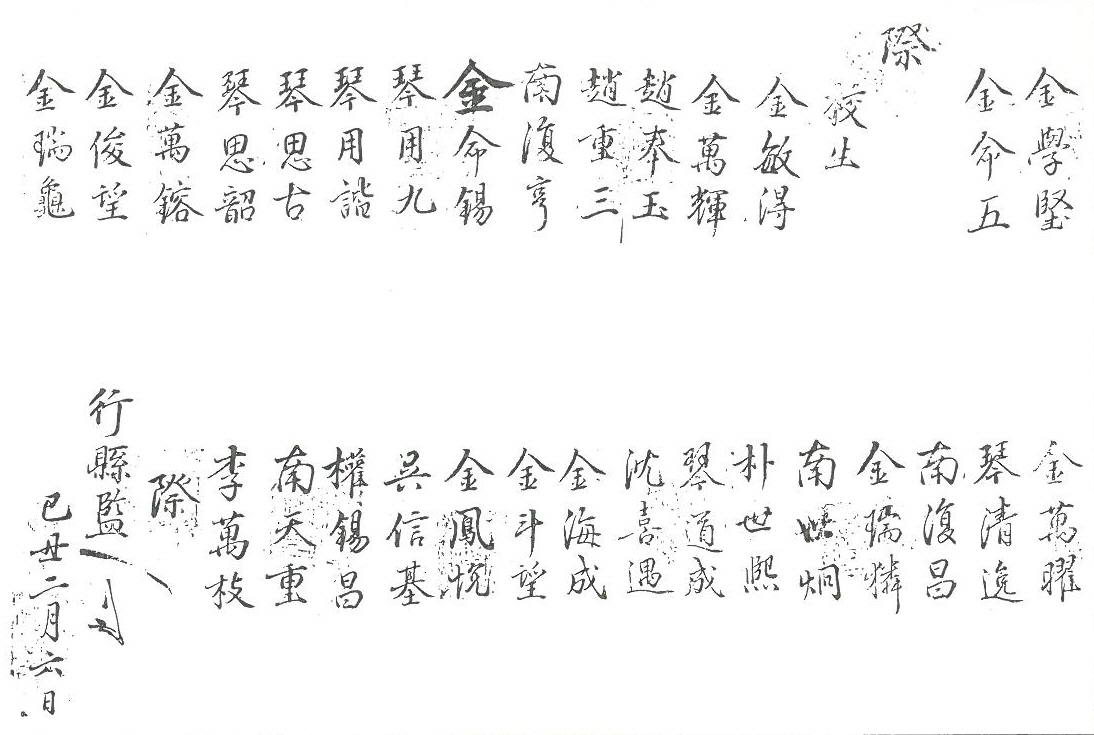 金學堅
金命五
際
校生
金敏得
金萬輝
趙奉玉
趙重三
南復亨
金命錫
琴用九
琴用諧
琴思古
琴思韶
金萬鎔
金俊望
金瑞龜
金萬曜
琴清逸
南復昌
金瑞憐
南世炯
朴世熙
琴道成
沈喜遇
金海成
金斗望
金鳳悅
吳信基
權錫昌
南天重
李萬枝
際
行縣監
己丑二月六日